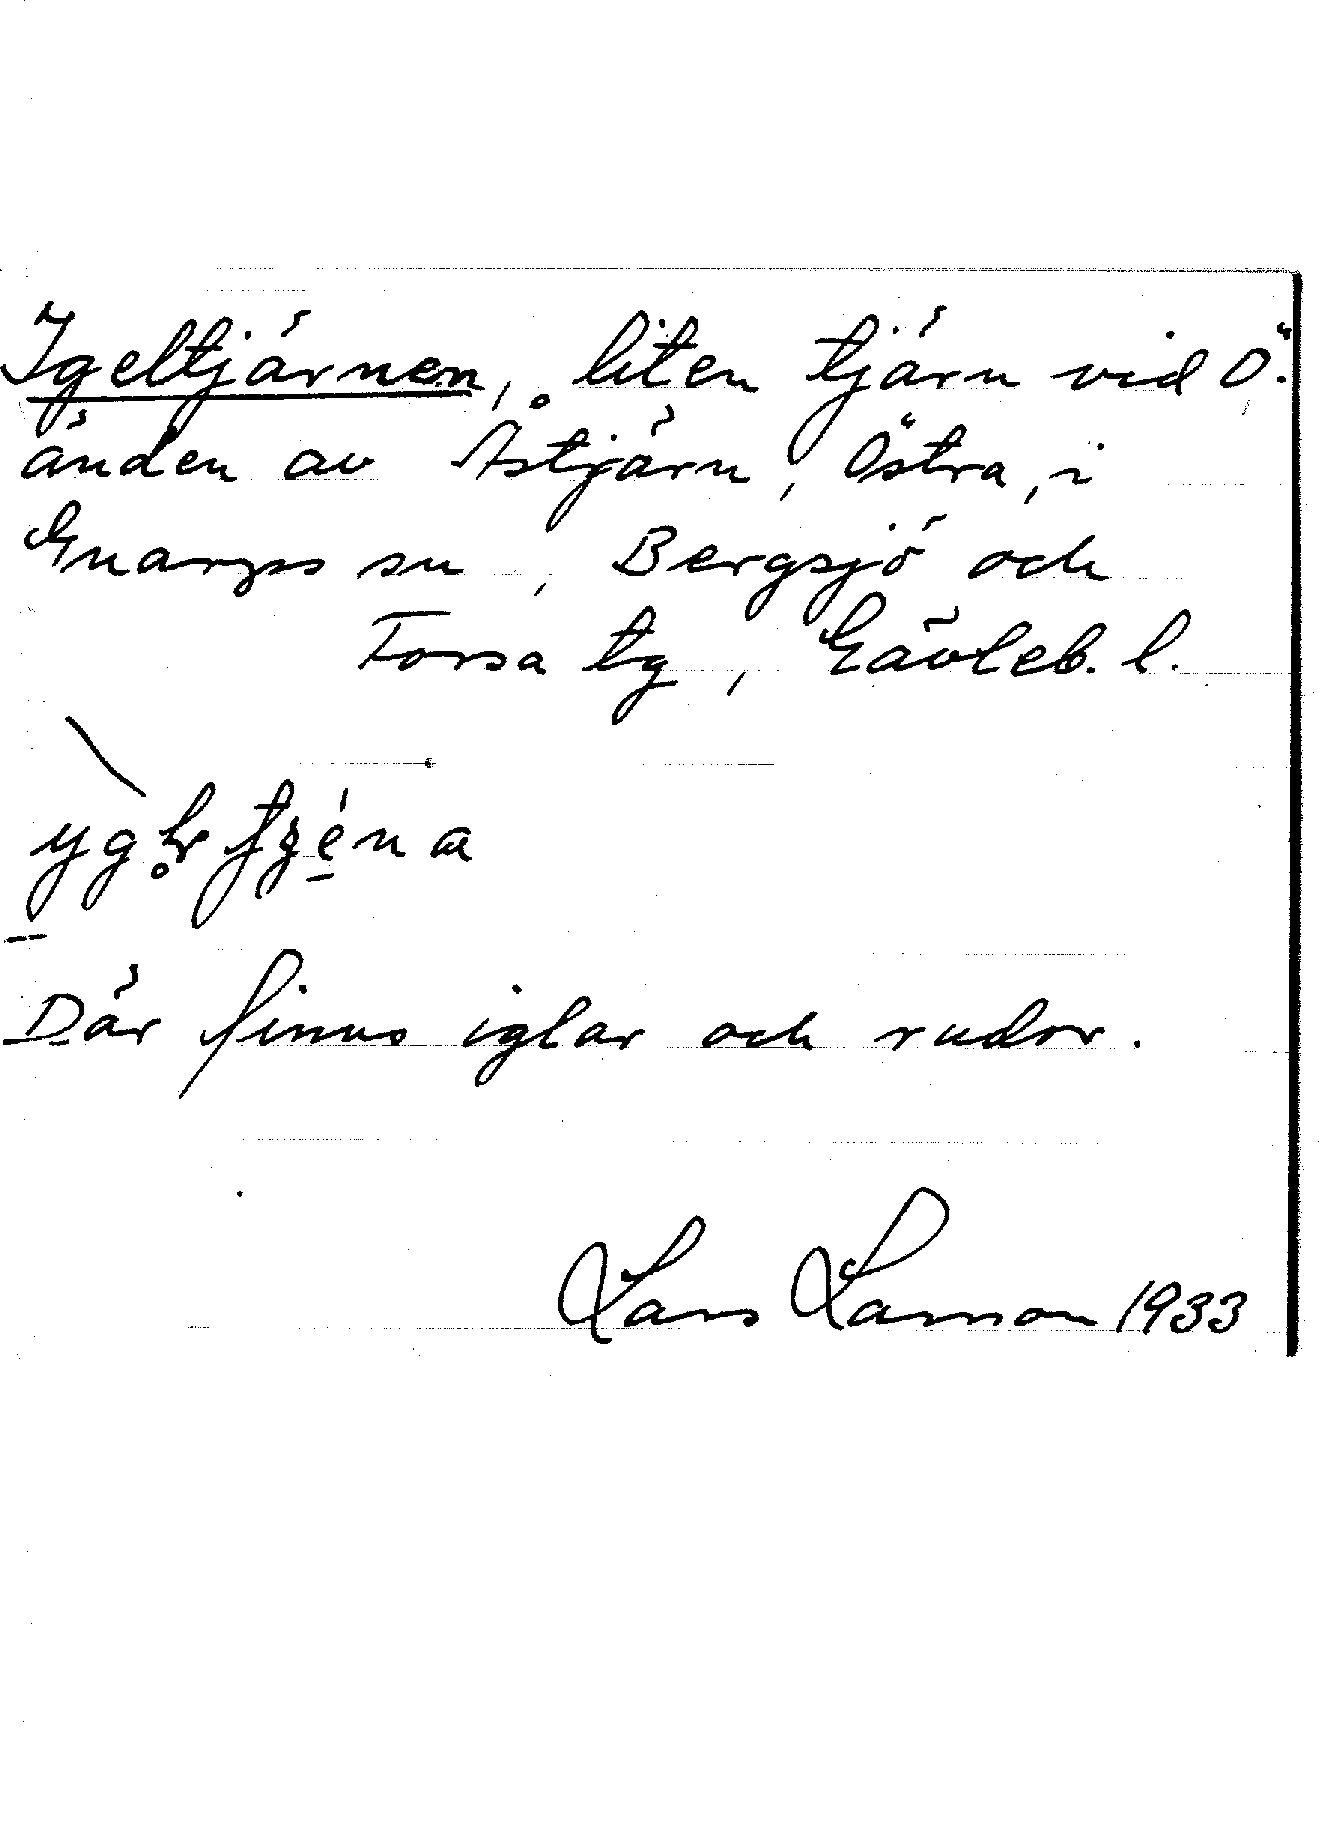 Igeltjärnen, liten tjärn vid Ö.
änden av Åstjärn, Östra, i
Gnarps sn, Bergsjö och
Forsa tg, Gävleb. l.
Där finns iglar och rudor.
Lars Larsson 1933